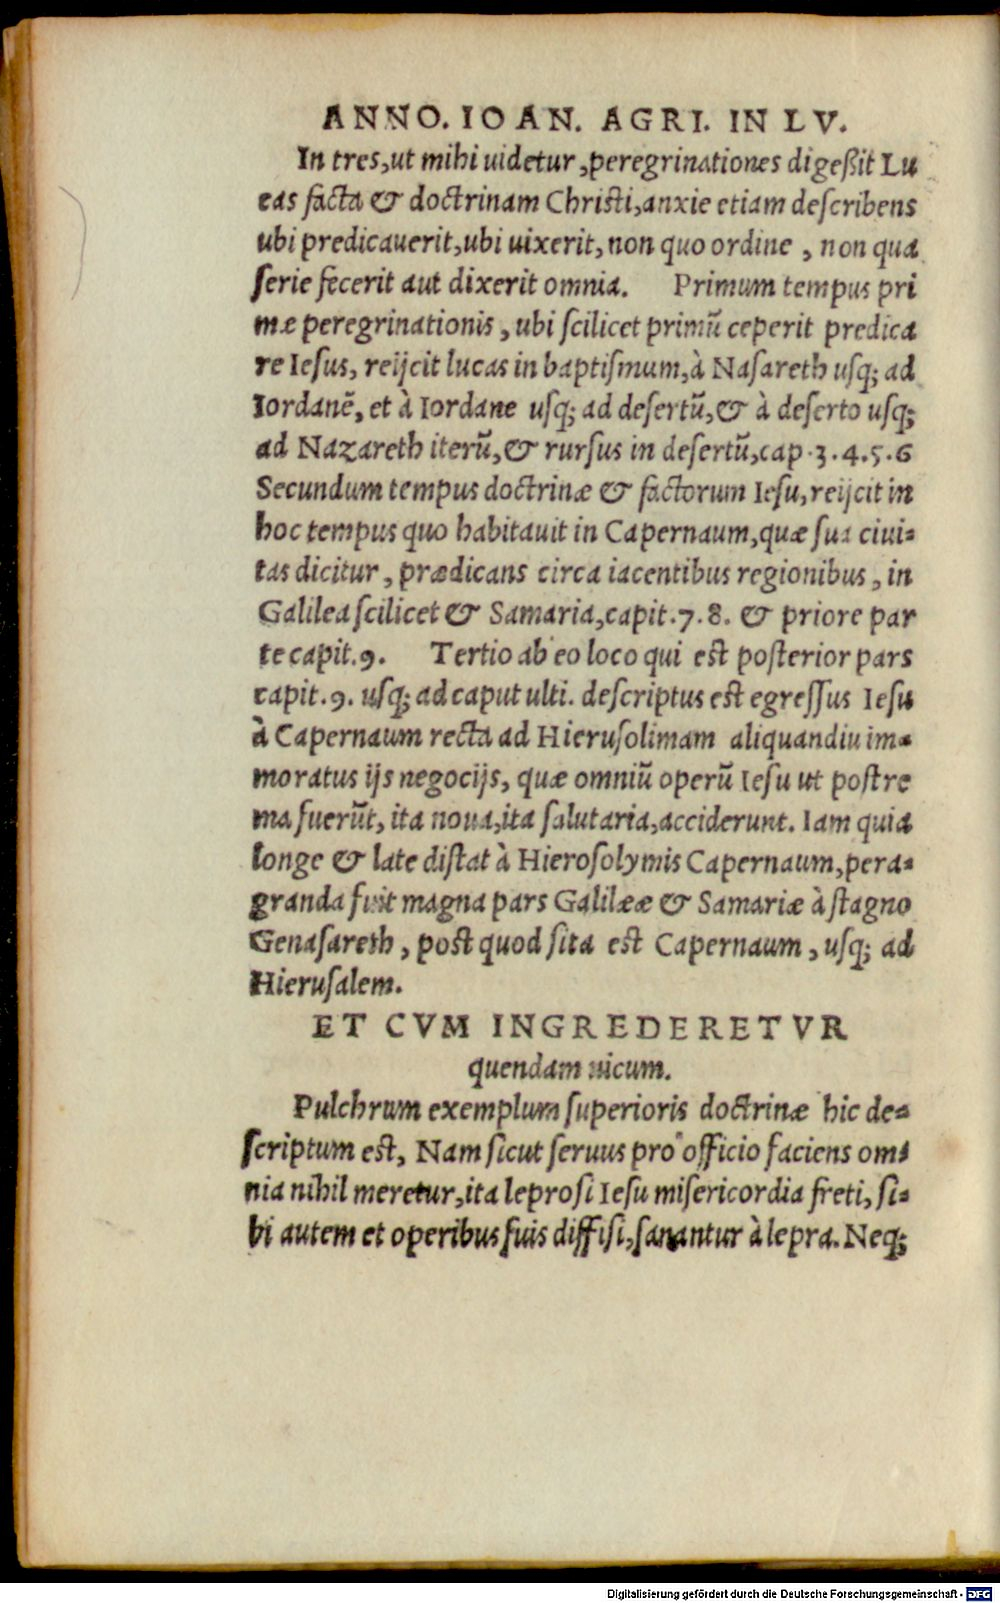 ANNO. IOAN. AGRI. IN LV.
In tres, ut mihi uidetur, peregrinationes digeßit Lu
cas facta & doctrinam Christi, anxie etiam describens
ubi predicauerit, ubi uixerit, non quo ordine, non qua
serie fecerit aut dixerit omnia. Primum tempus pri
mæ peregrinationis, ubi scilicet primũ ceperit predica
re Iesus, reijcit lucas in baptismum, à Nasareth usq; ad
Iordanẽ, et à Iordane usq; ad desertũ, & à deserto usq;
ad Nazareth iterũ, & rursus in desertũ, cap.3.4.5.6
Secundum tempus doctrinæ & factorum Iesu, reijcit in
hoc tempus quo habitauit in Capernaum, quæ sua ciui-
tas dicitur, prædicans circa iacentibus regionibus, in
Galilea scilicet & Samaria, capit.7.8. & priore par
te capit.9. Tertio ab eo loco qui est posterior pars
capit.9. usq; ad caput ulti. descriptus est egressus Iesu
à Capernaum recta ad Hierusolimam aliquandiu im-
moratus ijs negocijs, quæ omniũ operũ Iesu ut postre
ma fuerũt, ita noua, ita salutaria, acciderunt. Iam quia
longe & late distat à Hierosolymis Capernaum, pera-
granda fuit magna pars Galilææ & Samariæ à stagno
Genasareth, post quod sita est Capernaum, usq; ad
Hierusalem.
ET CVM INGREDERETVR
quendam uicum.
Pulchrum exemplum superioris doctrinæ hic de-
scriptum est, Nam sicut seruus pro officio faciens om-
nia nihil meretur, ita leprosi Iesu misericordia freti, si-
bi autem et operibus suis diffisi, sanantur à lepra. Neq;
Digitalisierung gefördert durch die Deutsche Forschungsgemeinschaft - DFG